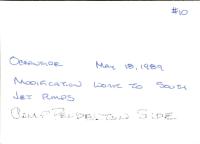 #10
OCEANSIDE MAY 18, 1989
MODIFICATION WORK TO SOUTH
JET PUMPS
CAMP PENDLETON SIDE